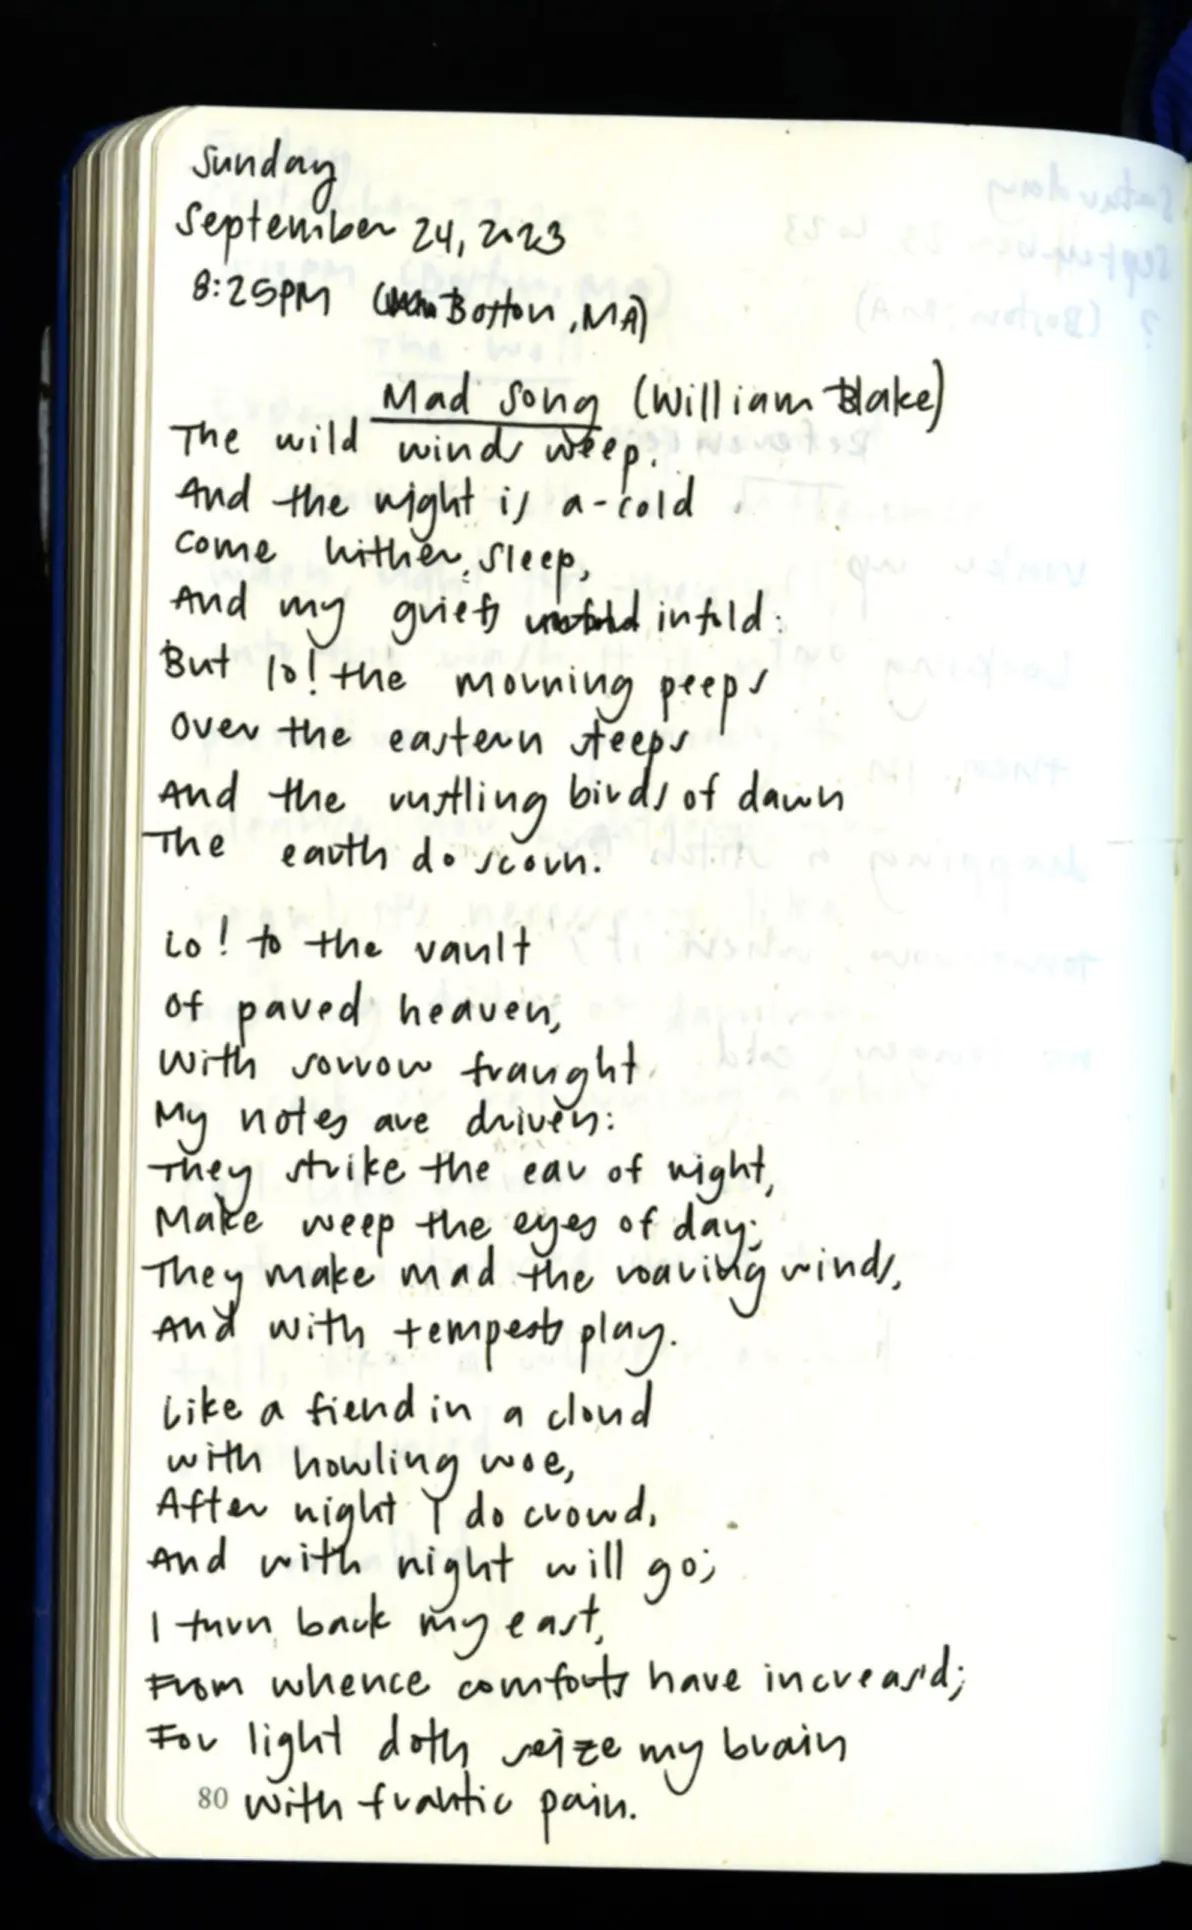 Sunday
September 24, 2023
8:25PM (Boston, MA)
Mad Song (William Blake)
The wild winds weep.
And the night is a-cold
Come hither, sleep,
And my griefs infold:
But lo! the morning peeps
Over the eastern steeps
And the rustling birds of dawn
The earth do scorn.
Lo! to the vault
Of paved heaven,
With sorrow fraught
My notes are driven:
They strike the ear of night,
Make weep the eyes of day;
They make mad the roaring winds,
And with tempests play.
Like a fiend in a cloud
with howling woe,
After night I do crowd,
And with night will go;
I turn back my east,
From whence comforts have increas'd;
For light doth seize my brain
80 With frantic pain.